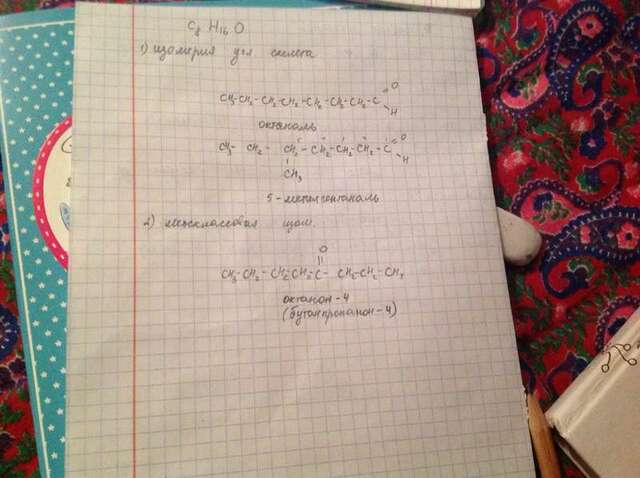 C₈ H₁₆ O
1) изомерия угл скелета
CH₃-CH₂-CH₂-CH₂-CH₂-CH₂-CH₂-C
O
H
октаналь
CH₃- CH₂ - CH₂ - CH₂-CH₂-CH₂-C
O
H
CH₃
2) межклассовая изом.
O
CH₃-CH₂-CH₂-CH₂-C-CH₂-CH₂-CH₃
октанон-4
(бутилпропанон-4)